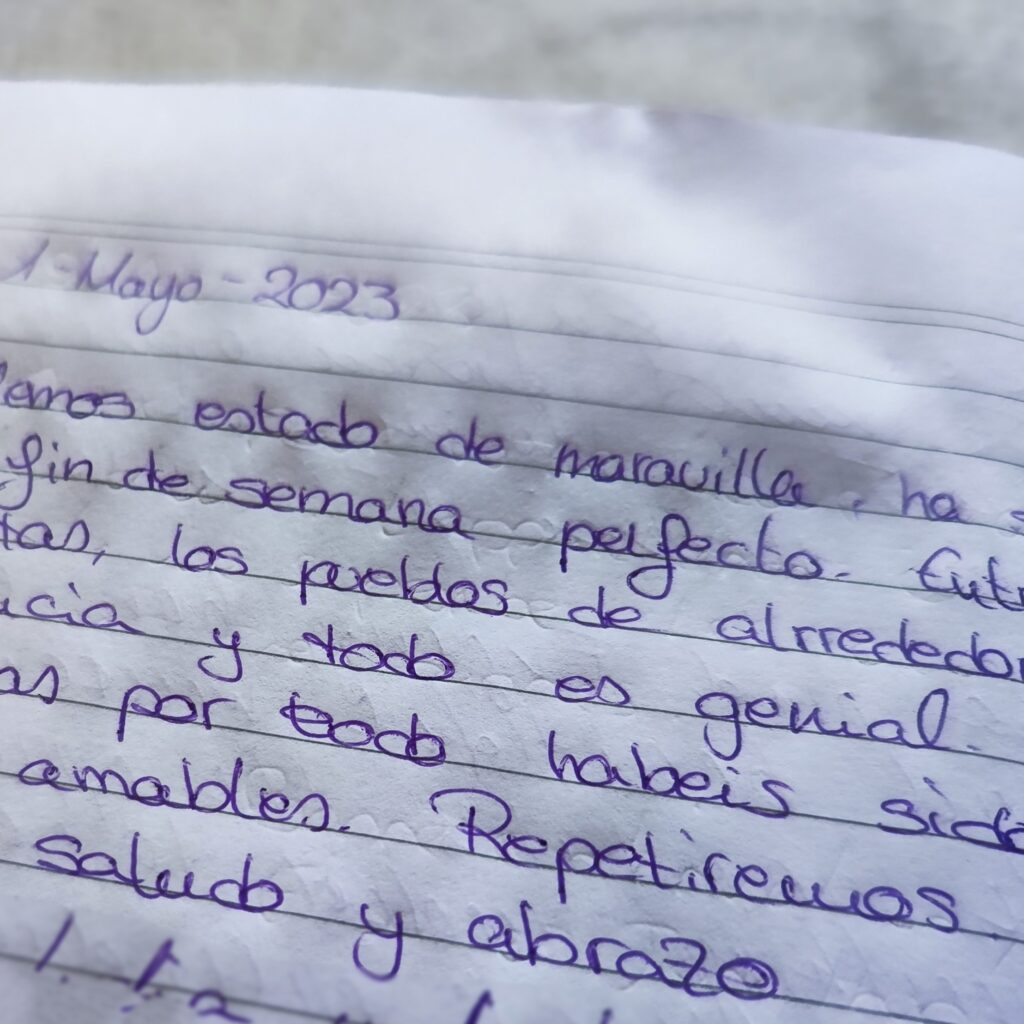 1-Mayo-2023
emos estado de maravilla, ha s
fin de semana perfecto. Entr
tas, los pueblos de alrrededor
ucia y todo es genial.
as por todo habeis sido
amables. Repetiremos.
saludo y abrazo